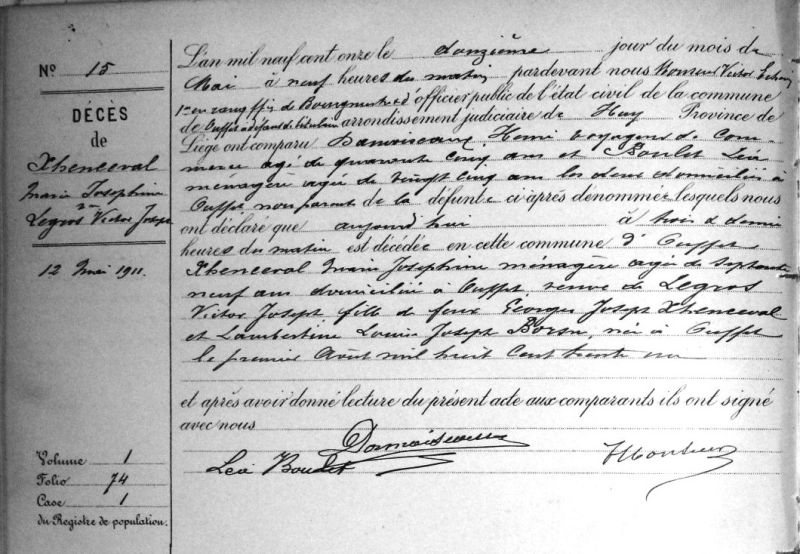 N° 15
DÉCÈS
de
Xhenceval
Marie Josephine
Vve
Legros Victor Joseph
12 Mai 1911.
Volume 1
Folio 74
Case 1
du Registre de population.
L'an mil neuf cent onze le douzième jour du mois de
Mai à neuf heures du matin pardevant nous Monseur Victor
de Bourgmestre d'officier public de l'état civil de la commune
de Ouffet arrondissement judiciaire de Huy Province de
Liége ont comparu Damoiseaux Henri voyageur de Com-
merce agé de quarante cinq ans et Boulet Léa
ménagère agée de vingt cinq ans les deux domiciliés à
Ouffet non parents de la défunte ci-après dénommée lesquels nous
ont déclaré que aujourd'hui à trois & demie
heures du matin est décédée en cette commune d'Ouffet
Xhenceval Marie Josephine ménagère agée de septante
neuf ans domiciliée à Ouffet, veuve de Legros
Victor Joseph fille de feux Georges Joseph Xhenceval
et Lambertine Louise Joseph née à Ouffet
le premier Août mil huit cent trente un
et après avoir donné lecture du présent acte aux comparants ils ont signé
avec nous
Damoiseaux
Léa Boulet